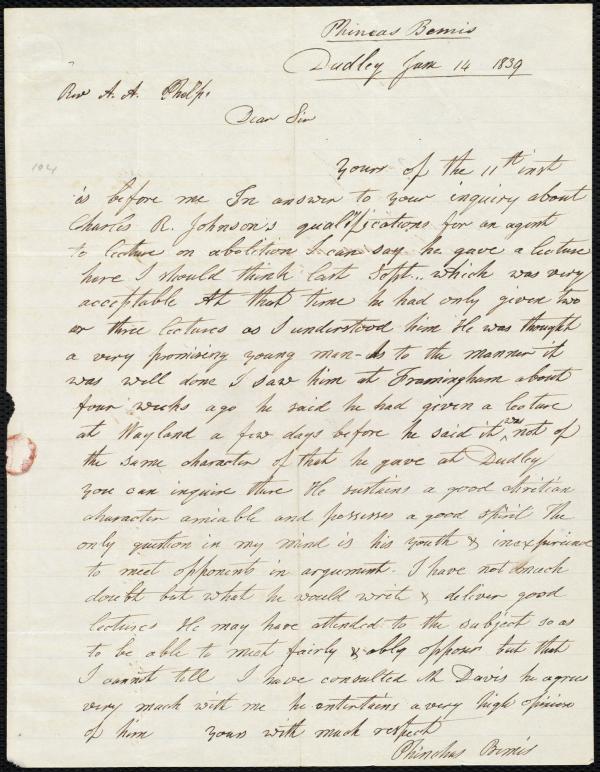 Phineas Bemis
Dudley Jan 14 1839
Rev A. A. Phelps
Dear Sir
104
Yours of the 11th inst
is before me In answer to your inquiry about
Charles R. Johnson's qualifications for an agent
to lecture on abolition I can say he gave a lecture
here I should think last Sept.. which was very
acceptable At that time he had only given two
or three lectures as I understood him He was thought
a very promising young man - As to the manner it
was well done I saw him at Framingham about
four weeks ago he said he had given a lecture
at Wayland a few days before he said it was not of
the same character of that he gave at Dudley
you can inquire there He sustains a good christian
character amiable and possesses a good spirit the
only question in my mind is his youth & inexperience
to meet opponents in argument. I have not much
doubt but what he would write & deliver good
lectures He may have attended to the subject so as
to be able to meet fairly & ably opposers but that
I cannot tell I have consulted Mr Davis he agrees
very much with me he entertains a very high opinion
of him Yours with much respect
Phinehas Bemis